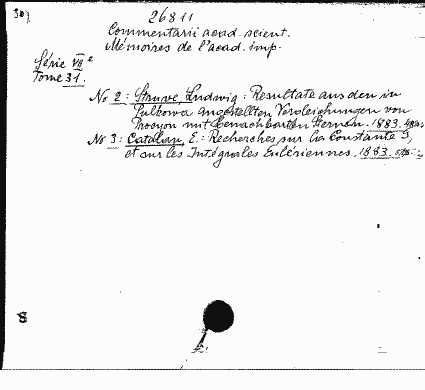 26811
Commentarii acad. scient.
Mémoires de l'acad. imp.
Série VII e
Tome 31.
No 2: Struve, Ludwig: Resultate aus den in
Pulkowa angestellten Vergleichungen von
Procyon mit benachbarten Sternen. 1883.
No 3: Catalan, E.: Recherches sur la Constante G,
et sur les Intégrales Eulériennes. 1883.
S